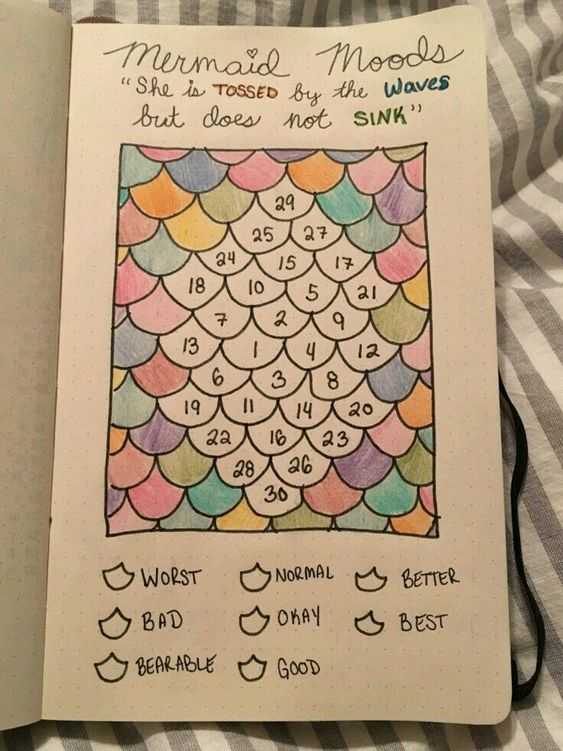 Mermaid Moods
"She is TOSSED by the waves
but does not SINK"
29
25 27
24 15 17
18 10 5 21
7 2 9
13 1 4 12
6 3 8
19 11 14 20
22 16 23
28 26
30
WORST NORMAL BETTER
BAD OKAY BEST
BEARABLE GOOD